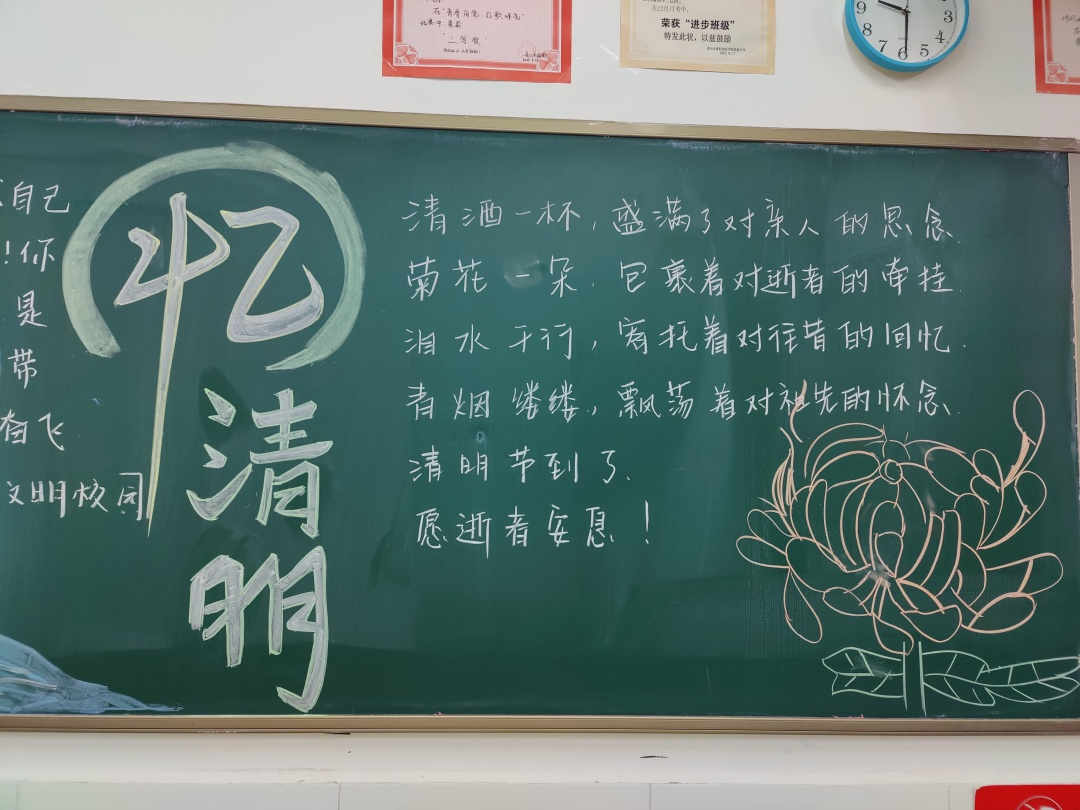 "二等奖"
在12月月考中，
荣获"进步班级"
特发此状，以兹鼓励
9
8
7
6
5
4
3
自己
！你
是
带
奋飞
文明校园
忆
清
明
清酒一杯，盛满了对亲人的思念.
菊花一朵.包裹着对逝者的牵挂.
泪水千行，寄托着对往昔的回忆.
青烟缕缕，飘荡着对祖先的怀念.
清明节到了.
愿逝者安息！